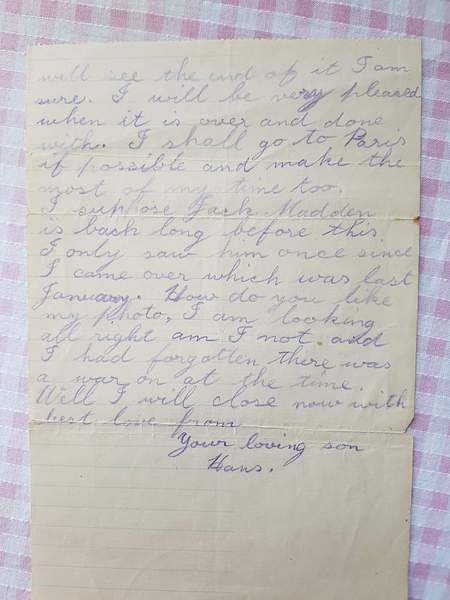 will see the end of it I am
sure. I will be very pleased
when it is over and done
with. I shall go to Paris
if possible and make the
most of my time too.
I supose Jack Madden
is back long before this
I only saw him once sinc
I came over which was last
January. How do you like
my photo, I am looking
all right am I not and
I had forgotten there was
a war on at the time.
Well I will close now with
best love from
Your loving son
Hans.